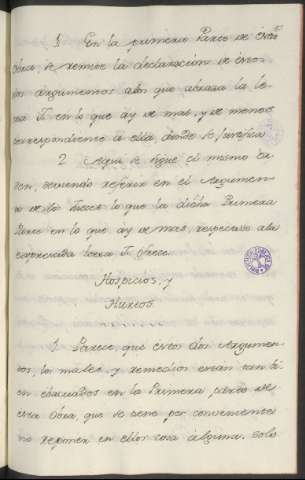 1 En la primera Parte de esta
obra, se remite la declaracion de estos
dos argumentos a los que abraza la le-
tra I. en lo que ay de mas, y de menos
correspondiente a ella, donde se
2 Aqui se sigue el mismo or-
den, deviendo referir en el Argumen-
to de la lo que la dicha Primera
Parte en lo que ay de mas, respectivo a la
expresada letra I. ofrece.
Hospicios, y
Hurtos.
1 Parece, que estos dos Argumen-
tos, los males, y remedios estan tambi-
en en la Primera parte de
esta Obra, que se tiene por conveniente
no reponer en ellos cosa alguna. Solo